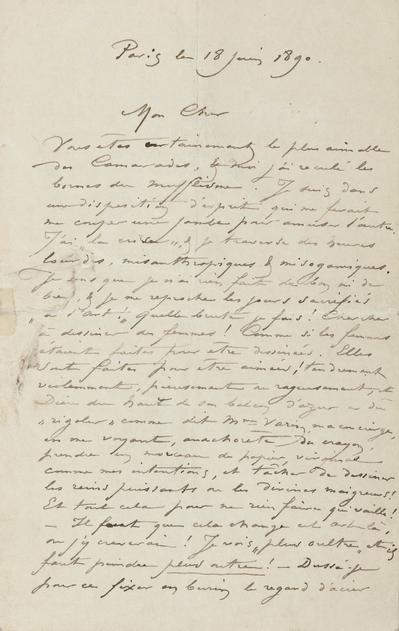 Paris le 18 Juin 1890.
Mon Cher
Vous êtes certainement le plus aimable
des Camarades, & moi j'ai reculé les
bornes du muflisme. Je suis dans
une disposition d'esprit qui me ferait
me couper une jambe pour amuser l'autre.
J'ai "la crise", & je traverse des heures
lourdes, misanthropiques & misogamiques.
Je sens que je n'ai rien fait de bon, ni de
bien, & je me reproche les jours sacrifiés
"à l'art"; quelle brute je fais! Chercher
à dessiner des femmes! Comme si les femmes
étaient faites pour être dessinées. Elles
sont faites pour être aimées! tendrement,
violemment, pieusement ou rageusement, et
Dieu du haut de son balcon d'azur a dû
"rigoler" comme dit Mme Varin, ma concierge,
en me voyant, anachorète du crayon,
prendre un morceau de papier, vierge
comme mes intentions, et tâcher de dessiner
les reins puissants ou les divines maigreurs!
Et tout cela pour ne rien faire qui vaille!
– Il faut que cela change et
ou j'y crèverai! Je vois "plus oultre" et il
faut peindre plus oultre! – Dussé-je
pour ce fixer au burin le regard d'acier